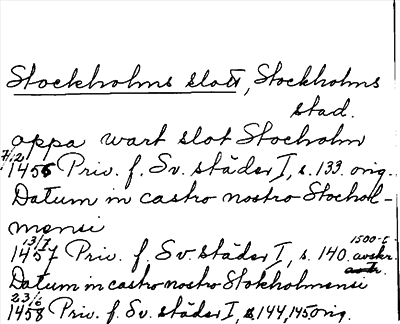 Stockholms slott, Stockholms
stad.
oppa wart slot Stocholm
7/2 1456 Priv. f. Sv. städer I, s. 133. orig.
Datum in castro nostro Stochol-
mensi
13/7 1457 Priv. f. Sv. städer I, s. 140. 1500-t. avskr.
Datum in castro nostro Stokholmensi
23/6 1458 Priv. f. Sv. städer I, s. 144, 145 orig.